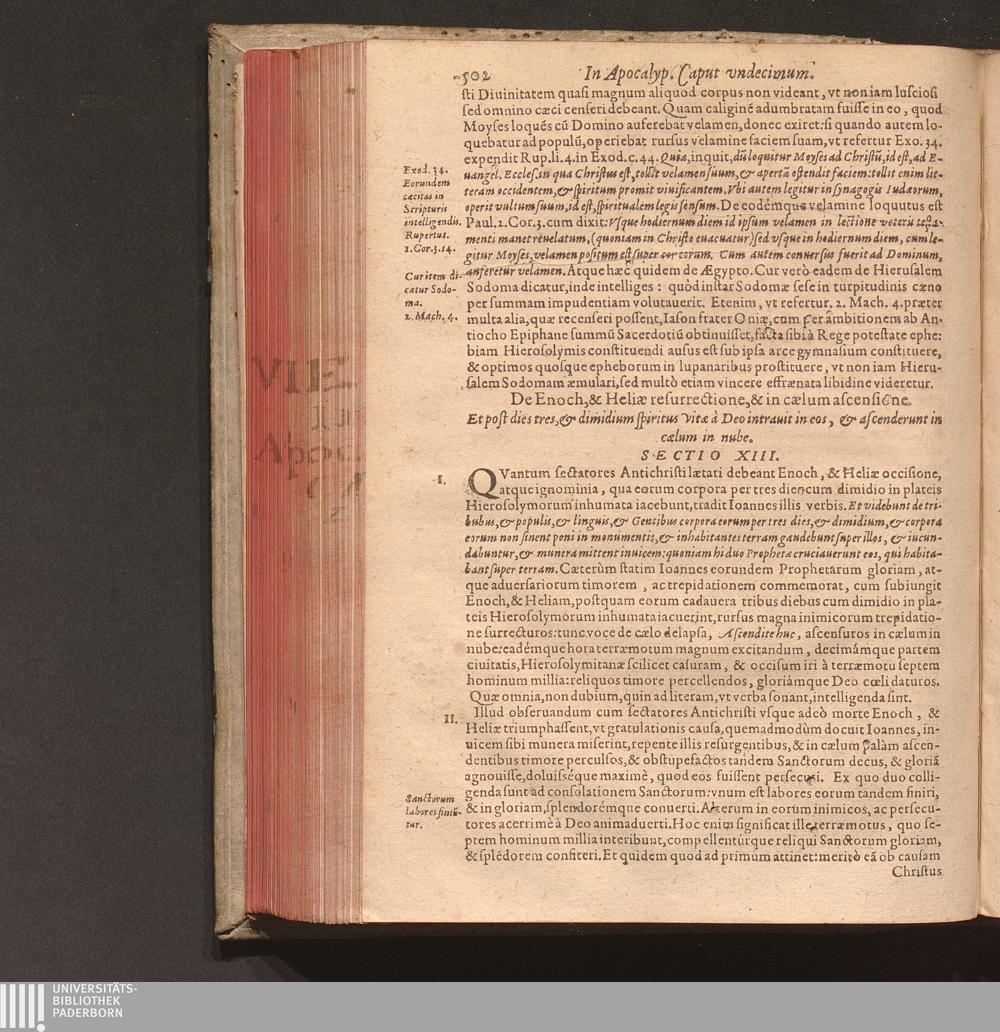 502 In Apocalyp. Caput vndecimum.
sti Diuinitatem quasi magnum aliquod corpus non videant, vt non iam lusciosi
sed omnino cæci censeri debeant. Quam caliginẽ adumbratam fuisse in eo, quod
Moyses loquẽs cũ Domino auferebat velamen, donec exiret: si quando autem lo-
quebatur ad populũ, operiebat rursus velamine faciem suam, vt refertur Exo. 34.
expendit Rup. li. 4. in Exod. c. 44. Quia, inquit, dũ loquitur Moyses ad Christũ, id est, ad E-
uangel. Eccles. in qua Christus est, tollit velamen suum, & apertã ostendit faciem: tollit enim lit-
teram occidentem, & spiritum promit viuificantem. Vbi autem legitur in synagogis Iudæorum,
operit vultum suum, id est, spiritualem legis sensum. De eodémque velamine loquutus est
Paul. 2. Cor. 3. cum dixit: Vsque hodiernum diem id ipsum velamen in lectione veteris testa-
menti manet reuelatum, (quoniam in Christo euacuatur) sed vsque in hodiernum diem, cum le-
gitur Moyses, velamen positum est super cor eorum. Cum autem conuersus fuerit ad Dominum,
auferetur velamen. Atque hæc quidem de Ægypto. Cur verò eadem de Hierusalem
Sodoma dicatur, inde intelliges: quòd instar Sodomæ sese in turpitudinis cæno
per summam impudentiam volutauerit. Etenim, vt refertur. 2. Mach. 4. præter
multa alia, quæ recenseri possent, Iason frater Oniæ, cum per ambitionem ab An-
tiocho Epiphane summũ Sacerdotiũ obtinuisset, facta sibi à Rege potestate ephe-
biam Hierosolymis constituendi ausus est sub ipsa arce gymnasium constituere,
& optimos quosque epheborum in lupanaribus prostituere, vt non iam Hieru-
salem Sodomam æmulari, sed multò etiam vincere effrænata libidine videretur.
De Enoch, & Heliæ resurrectione, & in cælum ascensione.
Et post dies tres, & dimidium spiritus vitæ à Deo intrauit in eos, & ascenderunt in
cælum in nube.
SECTIO XIII.
QVantum sectatores Antichristi lætari debeant Enoch, & Heliæ occisione,
atque ignominia, qua eorum corpora per tres dies cum dimidio in plateis
Hierosolymorum inhumata iacebunt, tradit Ioannes illis verbis. Et videbunt de tri-
bubus, & populis, & linguis, & Gentibus corpora eorum per tres dies, & dimidium, & corpora
eorum non sinent poni in monumentis, & inhabitantes terram gaudebunt super illos, & iucun-
dabuntur, & munera mittent inuicem: quoniam hi duo Prophetæ cruciauerunt eos, qui habita-
bant super terram. Cæterùm statim Ioannes eorundem Prophetarum gloriam, at-
que aduersariorum timorem, ac trepidationem commemorat, cum subiungit
Enoch, & Heliam, postquam eorum cadauera tribus diebus cum dimidio in pla-
teis Hierosolymorum inhumata iacuerint, rursus magna inimicorum trepidatio-
ne surrecturos: tunc voce de cælo delapsa, Ascendite huc, ascensuros in cælum in
nube: eadémque hora terræmotum magnum excitandum, decimámque partem
ciuitatis, Hierosolymitanæ scilicet casuram, & occisum iri à terræmotu septem
hominum millia: reliquos timore percellendos, gloriámque Deo cœli daturos.
Quæ omnia, non dubium, quin ad literam, vt verba sonant, intelligenda sint.
Illud obseruandum cum sectatores Antichristi vsque adeò morte Enoch, &
Heliæ triumphassent, vt gratulationis causa, quemadmodùm docuit Ioannes, in-
uicem sibi munera miserint, repente illis resurgentibus, & in cælum palàm ascen-
dentibus timore perculsos, & obstupefactos tandem Sanctorum decus, & gloriã
agnouisse, doluisséque maximè, quod eos fuissent persecuti. Ex quo duo colli-
genda sunt ad consolationem Sanctorum: vnum est labores eorum tandem finiri,
& in gloriam, splendorémque conuerti. Alterum in eorum inimicos, ac persecu-
tores acerrimè à Deo animaduerti. Hoc enim significat ille terræmotus, quo se-
ptem hominum millia interibunt, compellentúrque reliqui Sanctorum gloriam,
& splẽdorem confiteri. Et quidem quod ad primum attinet: meritò eã ob causam
Christus
Exod. 34.
Eorundem
cæcitas in
Scripturis
intelligendis.
Rupertus.
1. Cor. 3. 14.
Cur item di-
catur Sodo-
ma.
2. Mach. 4.
I.
II.
Sanctorum
labores finiũ-
tur.
VIE
In
Apoc.
UNIVERSITÄTS-
BIBLIOTHEK
PADERBORN